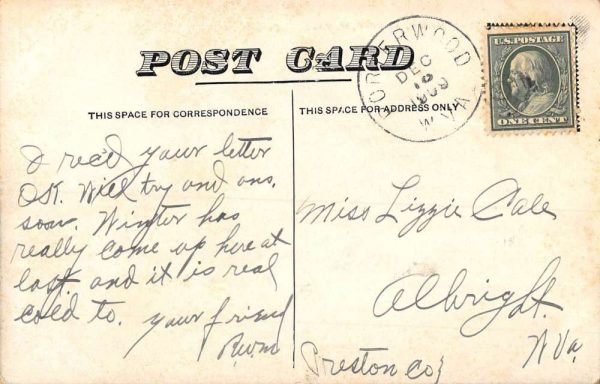 POST CARD
THIS SPACE FOR CORRESPONDENCE
THIS SPACE FOR ADDRESS ONLY
PORTERWOOD
DEC
1909
W.VA.
U.S. POSTAGE
ONE CENT
I rec'd your letter
O.K. Will try and ans.
soon. Winter has
really come up here at
last. and it is real
cold to. your friend
R.W.M
Miss Lizzie Cale
Albright.
W Va.
Preston Co